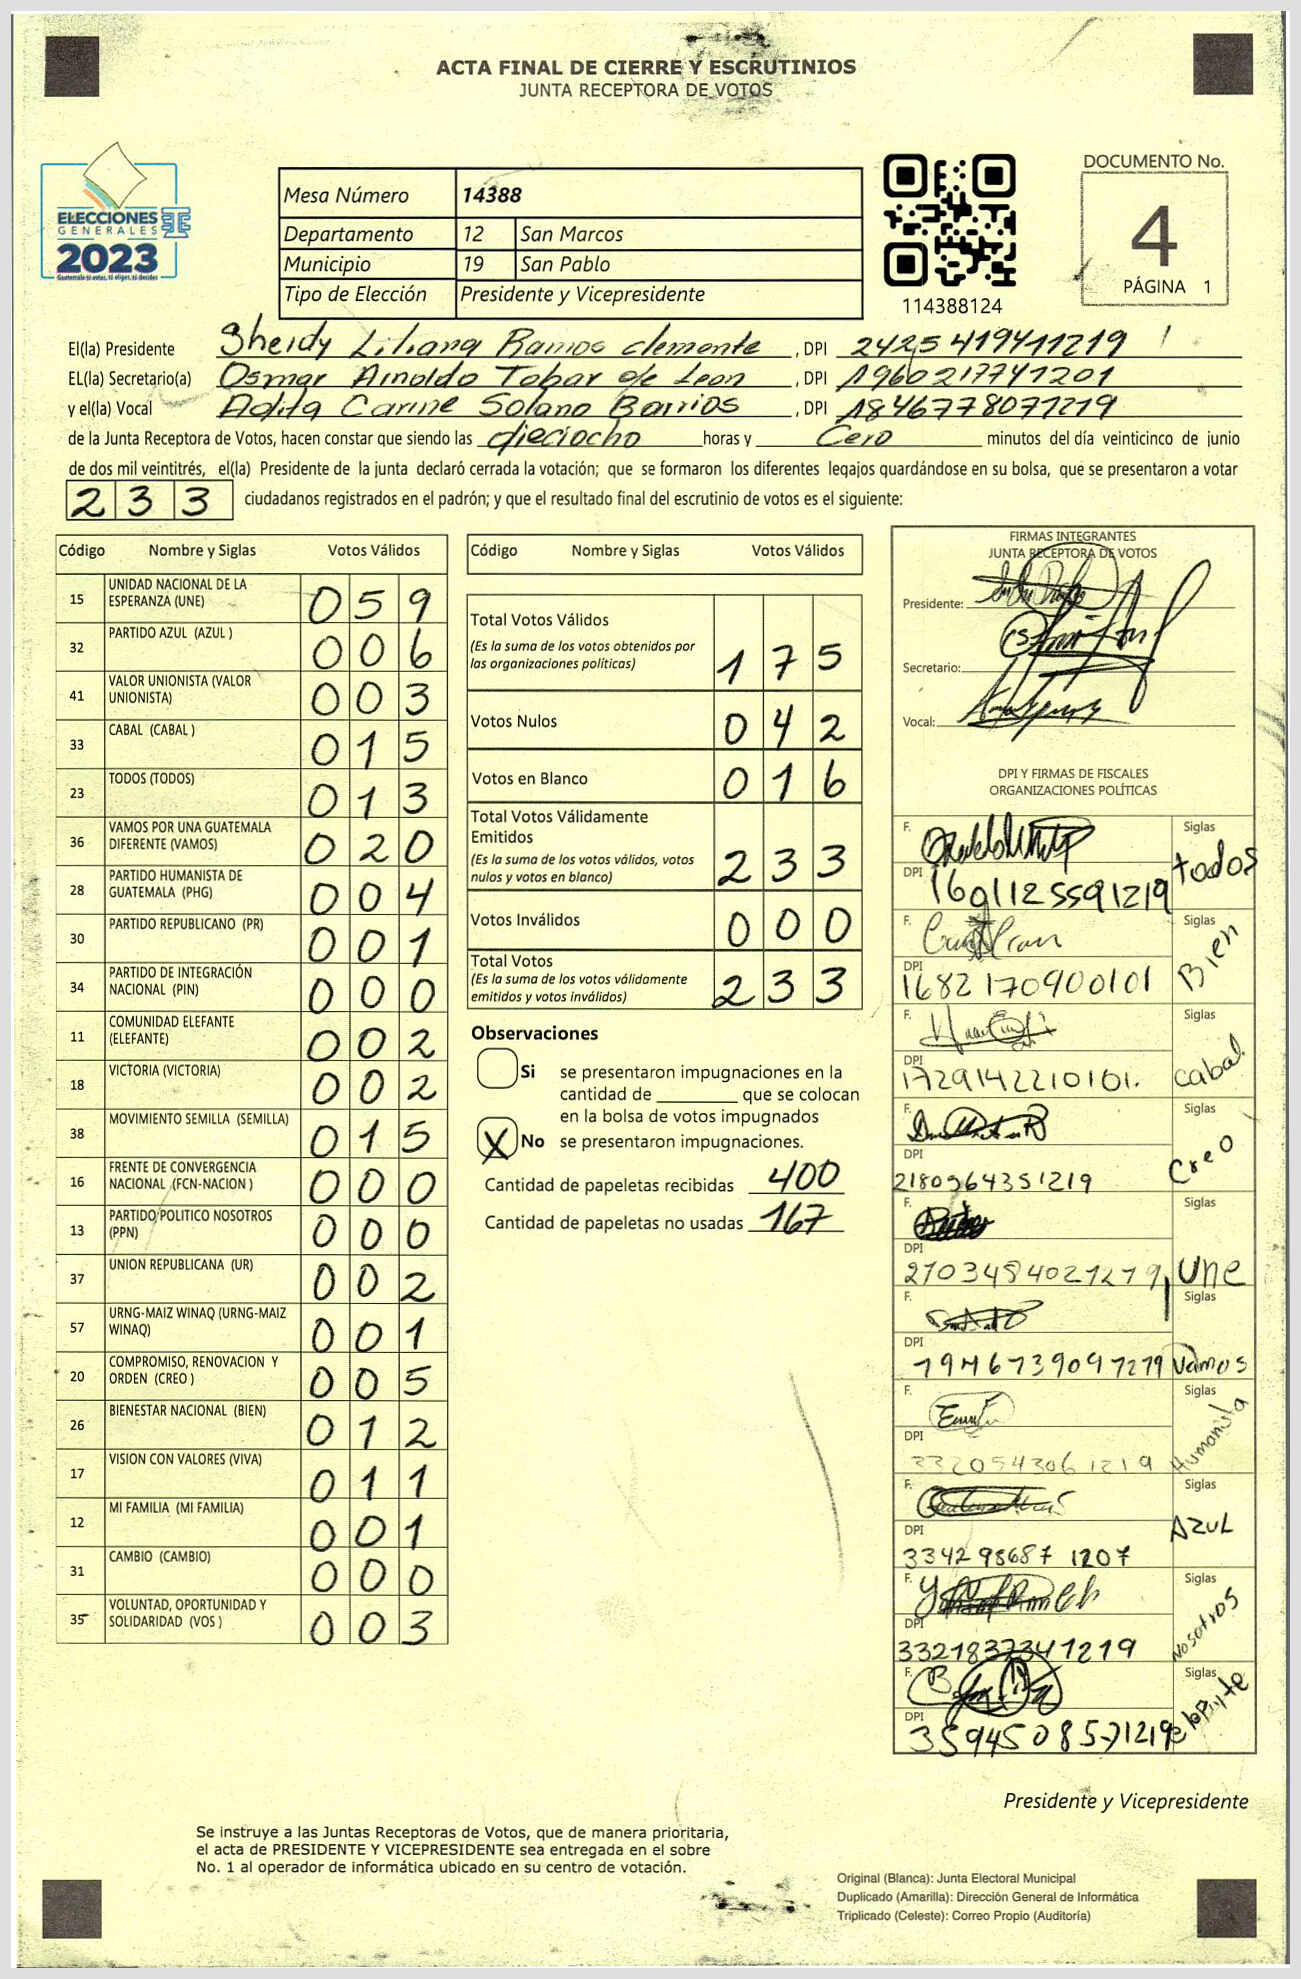 ACTA FINAL DE CIERRE Y ESCRUTINIOS
JUNTA RECEPTORA DE VOTOS
ELECCIONES
GENERALES
2023
Guatemala si votas, tú eliges, tú decides
Mesa Número 14388
Departamento 12 San Marcos
Municipio 19 San Pablo
Tipo de Elección Presidente y Vicepresidente
114388124
DOCUMENTO No.
4
PÁGINA 1
El(la) Presidente Sheidy Liliana Ramos clemente, DPI 2425419411219
EL(la) Secretario(a) Osmar Arnoldo Tobar de Leon, DPI 1960217741201
y el(la) Vocal Adita Carine Solano Barrios, DPI 1846778071219
de la Junta Receptora de Votos, hacen constar que siendo las dieciocho horas y Cero minutos del día veinticinco de junio
de dos mil veintitrés, el(la) Presidente de la junta declaró cerrada la votación; que se formaron los diferentes legajos quardándose en su bolsa, que se presentaron a votar
233 ciudadanos registrados en el padrón; y que el resultado final del escrutinio de votos es el siguiente:
Código Nombre y Siglas Votos Válidos
15 UNIDAD NACIONAL DE LA ESPERANZA (UNE) 059
32 PARTIDO AZUL (AZUL ) 006
41 VALOR UNIONISTA (VALOR UNIONISTA) 003
33 CABAL (CABAL ) 015
23 TODOS (TODOS) 013
36 VAMOS POR UNA GUATEMALA DIFERENTE (VAMOS) 020
28 PARTIDO HUMANISTA DE GUATEMALA (PHG) 004
30 PARTIDO REPUBLICANO (PR) 001
34 PARTIDO DE INTEGRACIÓN NACIONAL (PIN) 000
11 COMUNIDAD ELEFANTE (ELEFANTE) 002
18 VICTORIA (VICTORIA) 002
38 MOVIMIENTO SEMILLA (SEMILLA) 015
16 FRENTE DE CONVERGENCIA NACIONAL (FCN-NACION ) 000
13 PARTIDO POLITICO NOSOTROS (PPN) 000
37 UNION REPUBLICANA (UR) 002
57 URNG-MAIZ WINAQ (URNG-MAIZ WINAQ) 001
20 COMPROMISO, RENOVACION Y ORDEN (CREO ) 005
26 BIENESTAR NACIONAL (BIEN) 012
17 VISION CON VALORES (VIVA) 011
12 MI FAMILIA (MI FAMILIA) 001
31 CAMBIO (CAMBIO) 000
35 VOLUNTAD, OPORTUNIDAD Y SOLIDARIDAD (VOS ) 003
Código Nombre y Siglas Votos Válidos
Total Votos Válidos
(Es la suma de los votos obtenidos por
las organizaciones políticas) 175
Votos Nulos 042
Votos en Blanco 016
Total Votos Válidamente
Emitidos
(Es la suma de los votos válidos, votos
nulos y votos en blanco) 233
Votos Inválidos 000
Total Votos
(Es la suma de los votos válidamente
emitidos y votos inválidos) 233
Observaciones
Si se presentaron impugnaciones en la
cantidad de ________ que se colocan
en la bolsa de votos impugnados
X No se presentaron impugnaciones.
Cantidad de papeletas recibidas 400
Cantidad de papeletas no usadas 167
FIRMAS INTEGRANTES
JUNTA RECEPTORA DE VOTOS
Presidente:
Secretario:
Vocal:
DPI Y FIRMAS DE FISCALES
ORGANIZACIONES POLÍTICAS
F. Siglas todos
DPI 1601125591219
F. Siglas Bien
DPI 1682170900101
F. Siglas cabal
DPI 1729142210101.
F. Siglas Creo
DPI 2180964351219
F. Siglas une
DPI 2703484021219
F. Siglas Vamos
DPI 1946739091219
F. Siglas Humanista
DPI 3320543061219
F. Siglas AZUL
DPI 3342986871207
F. Siglas Nosotros
DPI 3321837341219
F. Siglas
DPI 3594508571219
Presidente y Vicepresidente
Se instruye a las Juntas Receptoras de Votos, que de manera prioritaria,
el acta de PRESIDENTE Y VICEPRESIDENTE sea entregada en el sobre
No. 1 al operador de informática ubicado en su centro de votación.
Original (Blanca): Junta Electoral Municipal
Duplicado (Amarilla): Dirección General de Informática
Triplicado (Celeste): Correo Propio (Auditoría)